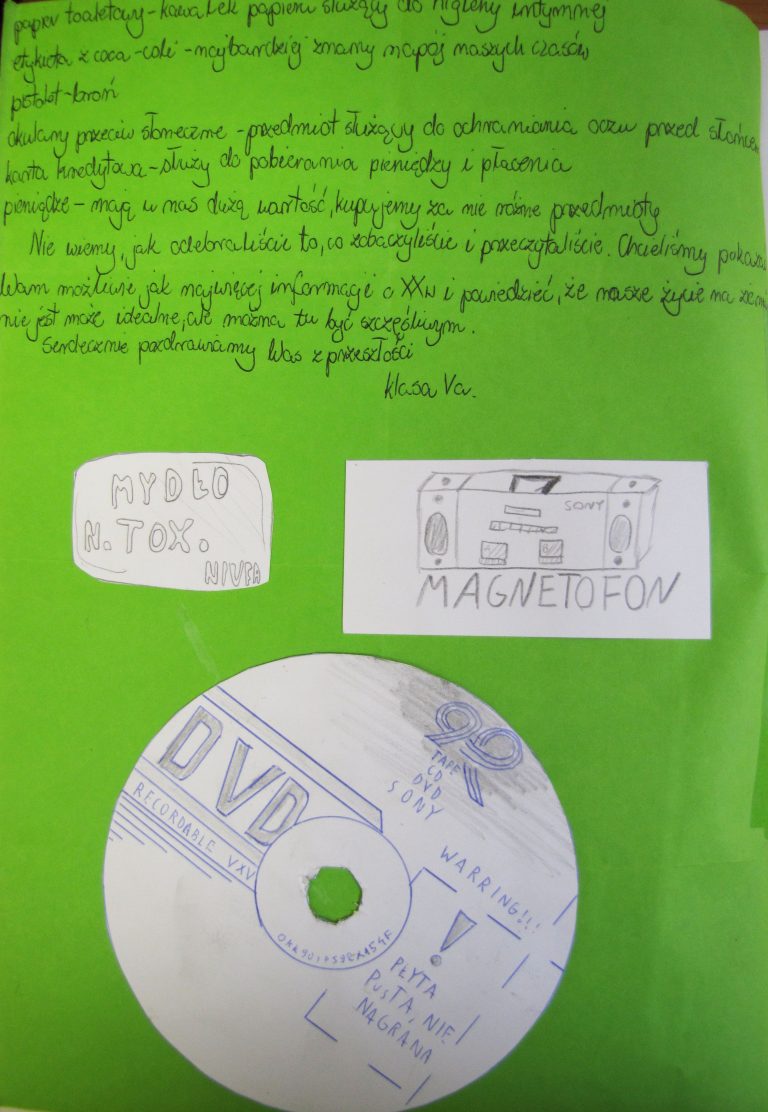 papier toaletowy - kawałek papieru służący do higieny intymnej
etykieta z coca-coli - najbardziej znany napój naszych czasów
pistolet - broń
okulary przeciw słoneczne - przedmiot służący do ochraniania oczu przed słońcem
karta kredytowa - służy do pobierania pieniędzy i płacenia
pieniądze - mają u nas dużą wartość, kupujemy za nie różne przedmioty
Nie wiemy, jak odebraliście to, co zobaczyliście i przeczytaliście. Chcieliśmy pokazać
Wam możliwie jak najwięcej informacji o XXw i powiedzieć, że nasze życie na ziemi
nie jest może idealne, ale można tu być szczęśliwym.
Serdecznie pozdrawiamy Was z przeszłości
klasa Va.
MYDŁO
N. TOX.
NIVEA
SONY
MAGNETOFON
DVD
RECORDABLE VXV
TAPE
CD
DVD
SONY
WARRING!!!
!
PŁYTA
PUSTA, NIE
NAGRANA